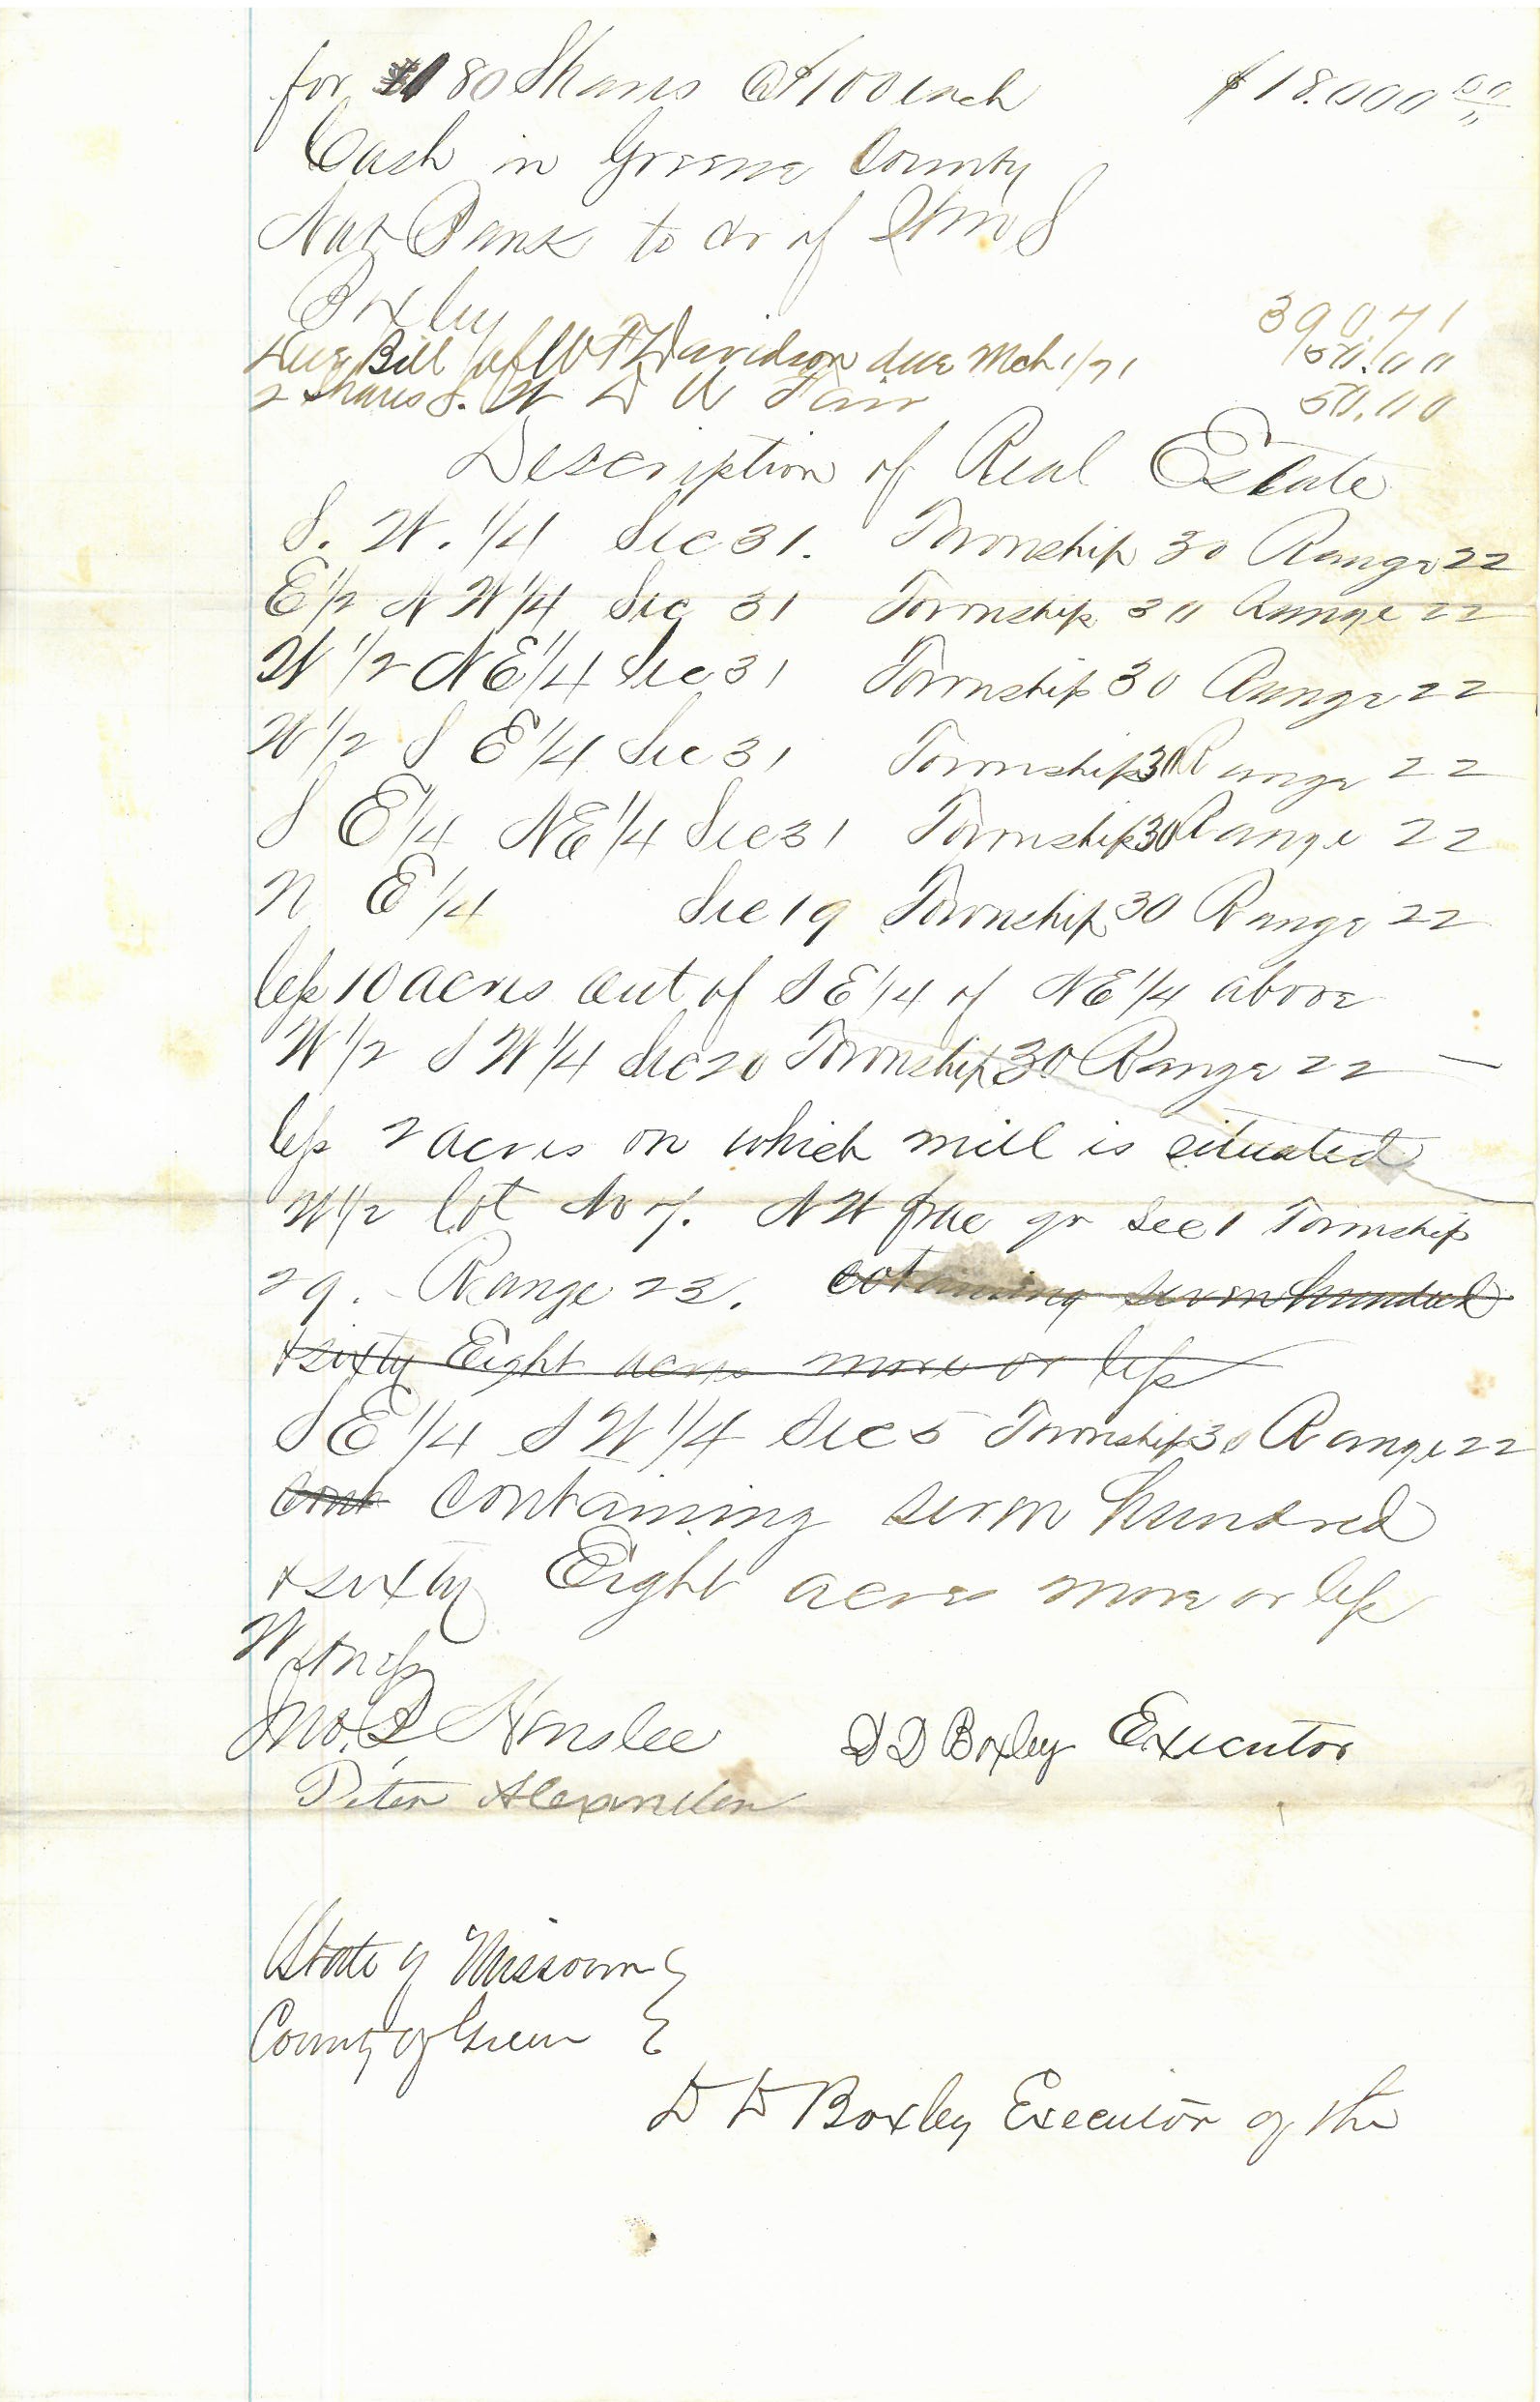 for 180 Shares @ $100 each $18.000 00
Cash in Greene County
Nat Bank to cr of Wm S
Boxley 390.71
Due Bill of W F Davidson due Mch 1/71 50.00
2 Shares S. W D A Fair 50.00
Description of Real Estate
S. W. 1/4 Sec 31. Township 30 Range 22
E 1/2 N W 1/4 Sec 31 Township 30 Range 22
W 1/2 N E 1/4 Sec 31 Township 30 Range 22
W 1/2 S E 1/4 Sec 31 Township 30 Range 22
S E 1/4 N E 1/4 Sec 31 Township 30 Range 22
N E 1/4 Sec 19 Township 30 Range 22
less 10 acres out of S E 1/4 of N E 1/4 above
W 1/2 S W 1/4 Sec 20 Township 30 Range 22 —
less 2 acres on which mill is situated
W 1/2 lot No 7. N W frac qr Sec 1 Township
29. Range 23. cotaining seven hundred
& sixty Eight acres more or less
S E 1/4 S W 1/4 Sec 5 Township 30 Range 22
cont containing seven hundred
& sixty Eight acres more or less
Witness
Jno. D Henslee D D Boxley Executor
Peter Alexander
State of Missouri
County of Green
D D Boxley Executor of the